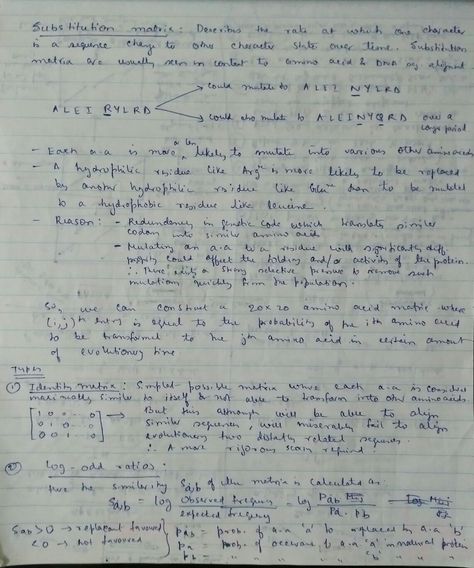 Substitution matrix : Describes the rate at which one character
in a sequence change to other character state over time. Substitution
matrix are usually seen in context to amino acid & DNA seq. aligned
could mutate to A L E I N Y L R D
A L E I R Y L R D
could also mutate to A L E I N Y Q R D over a
large period
- Each a.a is more or less likely to mutate into various other amino acids
- A hydrophilic residue like Arg is more likely to be replaced
by another hydrophilic residue like Glu than to be mutated
to a hydrophobic residue like leucine.
- Reason : - Redundancy in genetic code which translates similar
codons into similar amino acids
- Mutating an a.a to a residue with significantly diff
property could affect the folding and/or activity of the protein.
∴ There exists a strong selective pressure to remove such
mutations quickly from the population.
So, we can construct a 20x20 amino acid matrix where
(i,j)th entry is equal to the probability of the ith amino acid
to be transformed to the jth amino acid in certain amount
of evolutionary time
Types
① Identity matrix : Simplest possible matrix where each a.a is considered
maximally similar to itself & not able to transform into other amino acids.
[1 0 0 ... 0 → But this although will be able to align
0 1 0 ... 0 similar sequences, will miserably fail to align
0 0 1 ... 0] evolutionary two distantly related sequences.
∴ A more rigorous scoring required
② Log-odd ratios:
here the similarity Sab of the matrix is calculated as
Sab = log Observed frequency / expected frequency = log Pab / Pa . Pb
Sab >0 → replacement favoured
<0 → not favoured
Pab = prob. of a.a 'a' to replaced by a.a 'b'
Pa = prob. of occurence of a.a 'a' in natural protein
Pb = " " " 'b' " " "